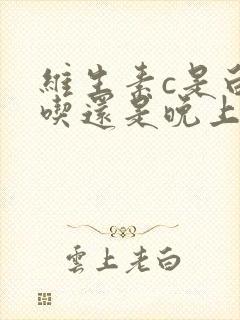 維生素c是白
喫還是晚上
雲上老白